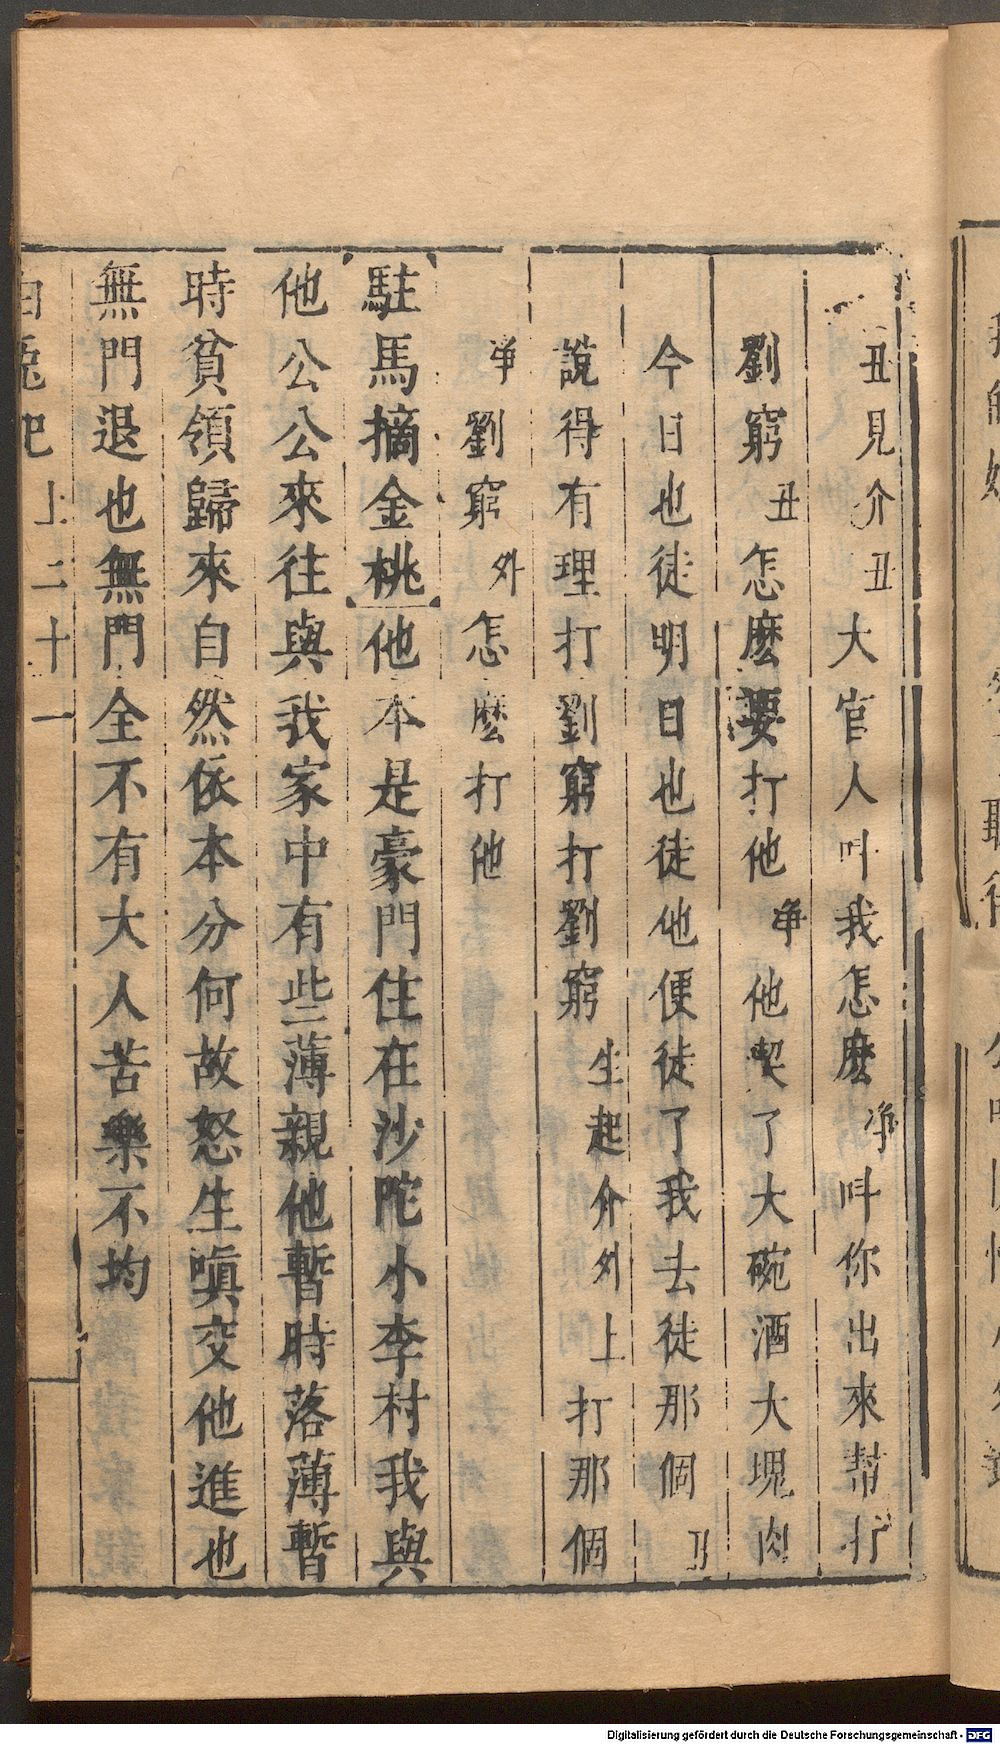 丑見介丑大官人叫我怎麽净叫你出來幫打
劉窮丑怎麽要打他净他喫了大碗酒大塊肉
今日也徒明日也徒他便徒了我去徒那個丑
說得有理打劉窮打劉窮生起介外上打那個
净劉窮外怎麽打他
駐馬摘金桃他本是豪門住在沙陀小李村我與
他公公來往與我家中有些薄親他暫時落薄暫
時貧領歸來自然依本分何故怒生嗔交他進也
無門退也無門全不有大人苦樂不均
白兎記上二十一
Digitalisierung gefördert durch die Deutsche Forschungsgemeinschaft - DFG